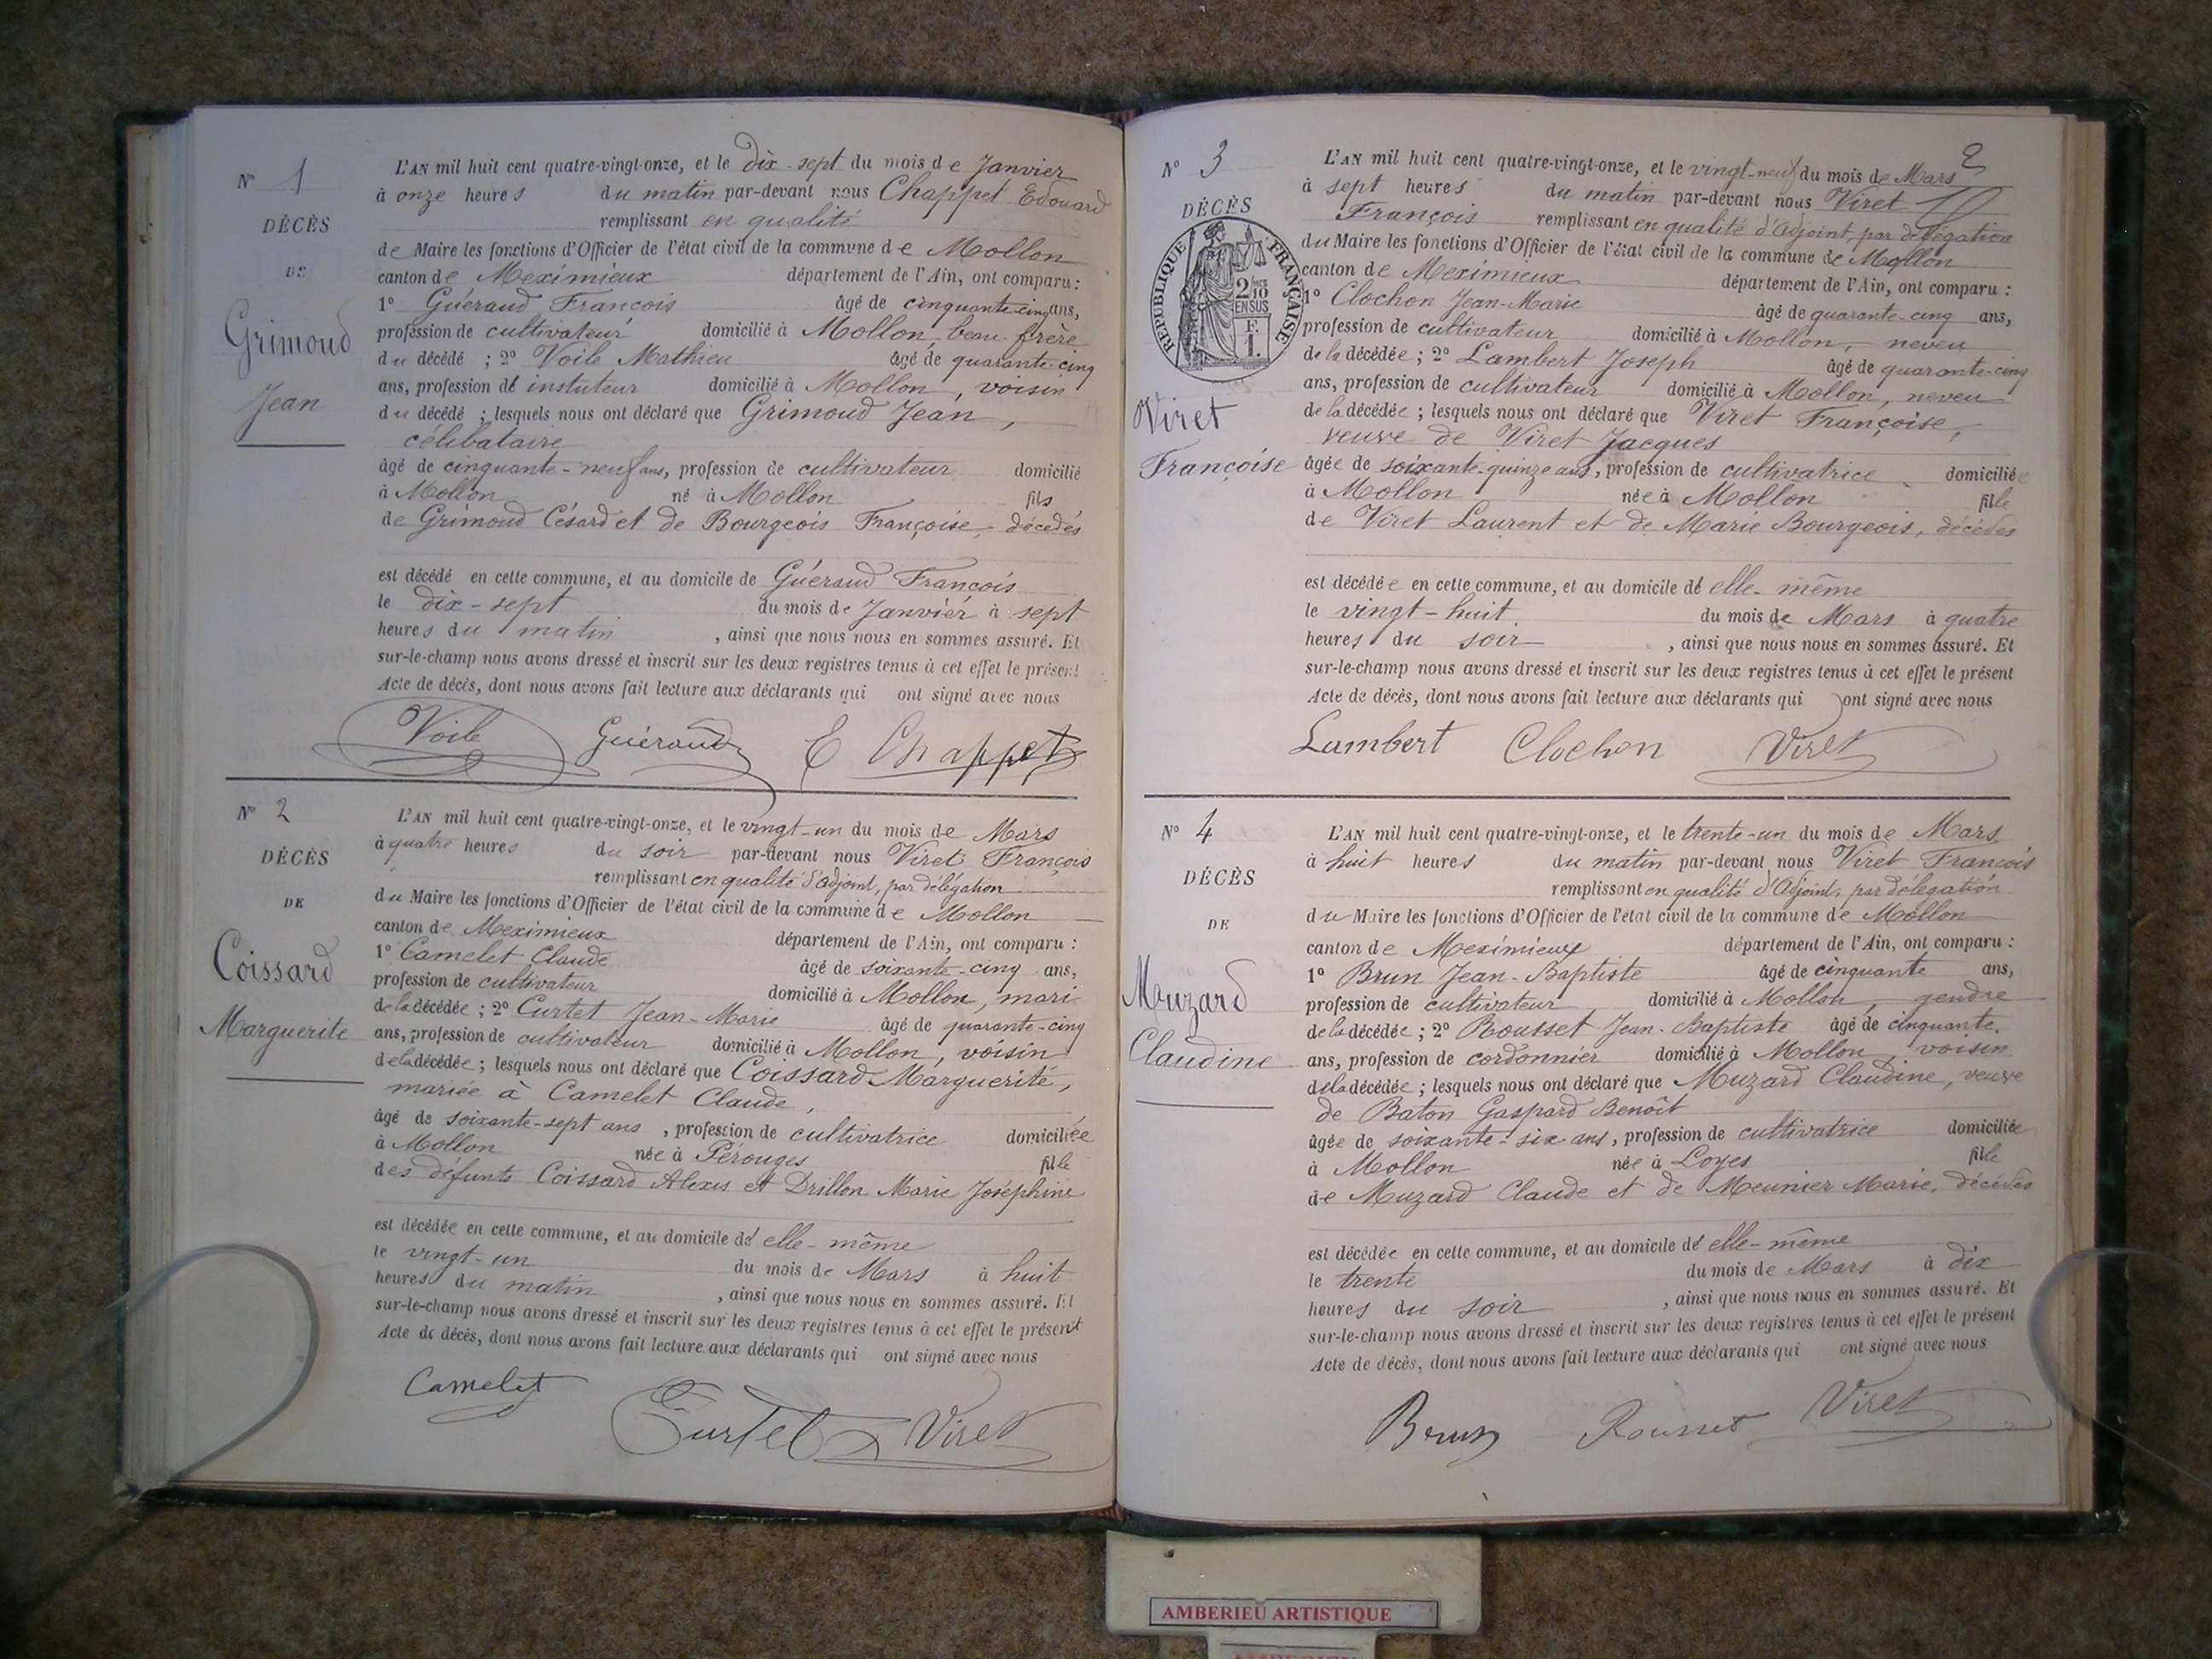 N° 1
DÉCÈS
DE
Grimoud
Jean
L'AN mil huit cent quatre-vingt-onze, et le dix-sept du mois de Janvier
à onze heures du matin par-devant nous Chappet Edouard
remplissant en qualité
de Maire les fonctions d'Officier de l'état civil de la commune de Mollon
canton de Meximieux département de l'Ain, ont comparu :
1° Guéraud François âgé de cinquante-cinq ans,
profession de cultivateur domicilié à Mollon, beau frère
du décédé ; 2° Voile Mathieu âgé de quarante-cinq
ans, profession de instuteur domicilié à Mollon, voisin
du décédé ; lesquels nous ont déclaré que Grimoud Jean,
célibataire
âgé de cinquante-neuf ans, profession de cultivateur domicilié
à Mollon né à Mollon fils
de Grimoud Césard et de Bourgeois Françoise, décédés
est décédé en cette commune, et au domicile de Guéraud François
le dix-sept du mois de Janvier à sept
heures du matin, ainsi que nous nous en sommes assuré. Et
sur-le-champ nous avons dressé et inscrit sur les deux registres tenus à cet effet le présent
Acte de décès, dont nous avons fait lecture aux déclarants qui ont signé avec nous
Voile Guéraud E Chappet
N° 2
DÉCÈS
DE
Coissard
Marguerite
L'AN mil huit cent quatre-vingt-onze, et le vingt-un du mois de Mars
à quatre heures du soir par-devant nous Viret François
remplissant en qualité d'adjoint, par délégation
du Maire les fonctions d'Officier de l'état civil de la commune de Mollon
canton de Meximieux département de l'Ain, ont comparu :
1° Camelet Claude âgé de soixante-cinq ans,
profession de cultivateur domicilié à Mollon, mari
de la décédée ; 2° Curtet Jean-Marie âgé de quarante-cinq
ans, profession de cultivateur domicilié à Mollon, voisin
de la décédée ; lesquels nous ont déclaré que Coissard Marguerite,
mariée à Camelet Claude,
âgé de soixante-sept ans, profession de cultivatrice domiciliée
à Mollon née à Pérouges fille
des défunts Coissard Alexis et Drillon Marie Joséphine
est décédée en cette commune, et au domicile de elle-même
le vingt-un du mois de Mars à huit
heures du matin, ainsi que nous nous en sommes assuré. Et
sur-le-champ nous avons dressé et inscrit sur les deux registres tenus à cet effet le présent
Acte de décès, dont nous avons fait lecture aux déclarants qui ont signé avec nous
Camelet Curtet Viret
2
N° 3
DÉCÈS
RÉPUBLIQUE FRANÇAISE
2/10 EN SUS
F. 1.
Viret
Françoise
L'AN mil huit cent quatre-vingt-onze, et le vingt-neuf du mois de Mars
à sept heures du matin par-devant nous Viret
François remplissant en qualité d'Adjoint, par délégation
du Maire les fonctions d'Officier de l'état civil de la commune de Mollon
canton de Meximieux département de l'Ain, ont comparu :
1° Clochon Jean-Marie âgé de quarante-cinq ans,
profession de cultivateur domicilié à Mollon, neveu
de la décédée ; 2° Lambert Joseph âgé de quarante-cinq
ans, profession de cultivateur domicilié à Mollon, neveu
de la décédée ; lesquels nous ont déclaré que Viret Françoise,
veuve de Viret Jacques
âgée de soixante-quinze ans, profession de cultivatrice domiciliée
à Mollon née à Mollon fille
de Viret Laurent et de Marie Bourgeois, décédés
est décédée en cette commune, et au domicile de elle-même
le vingt-huit du mois de Mars à quatre
heures du soir, ainsi que nous nous en sommes assuré. Et
sur-le-champ nous avons dressé et inscrit sur les deux registres tenus à cet effet le présent
Acte de décès, dont nous avons fait lecture aux déclarants qui ont signé avec nous
Lambert Clochon Viret
N° 4
DÉCÈS
DE
Muzard
Claudine
L'AN mil huit cent quatre-vingt-onze, et le trente-un du mois de Mars
à huit heures du matin par-devant nous Viret François
remplissant en qualité d'Adjoint, par délégation
du Maire les fonctions d'Officier de l'état civil de la commune de Mollon
canton de Meximieux département de l'Ain, ont comparu :
1° Brun Jean-Baptiste âgé de cinquante ans,
profession de cultivateur domicilié à Mollon, gendre
de la décédée ; 2° Rousset Jean-Baptiste âgé de cinquante,
ans, profession de cordonnier domicilié à Mollon, voisin
de la décédée ; lesquels nous ont déclaré que Muzard Claudine, veuve
de Baton Gaspard Benoît
âgée de soixante-six ans, profession de cultivatrice domiciliée
à Mollon née à Loyes fille
de Muzard Claude et de Meunier Marie, décédés
est décédée en cette commune, et au domicile de elle-même
le trente du mois de Mars à dix
heures du soir, ainsi que nous nous en sommes assuré. Et
sur-le-champ nous avons dressé et inscrit sur les deux registres tenus à cet effet le présent
Acte de décès, dont nous avons fait lecture aux déclarants qui ont signé avec nous
Brun Rousset Viret
AMBERIEU ARTISTIQUE
AMBERIEU